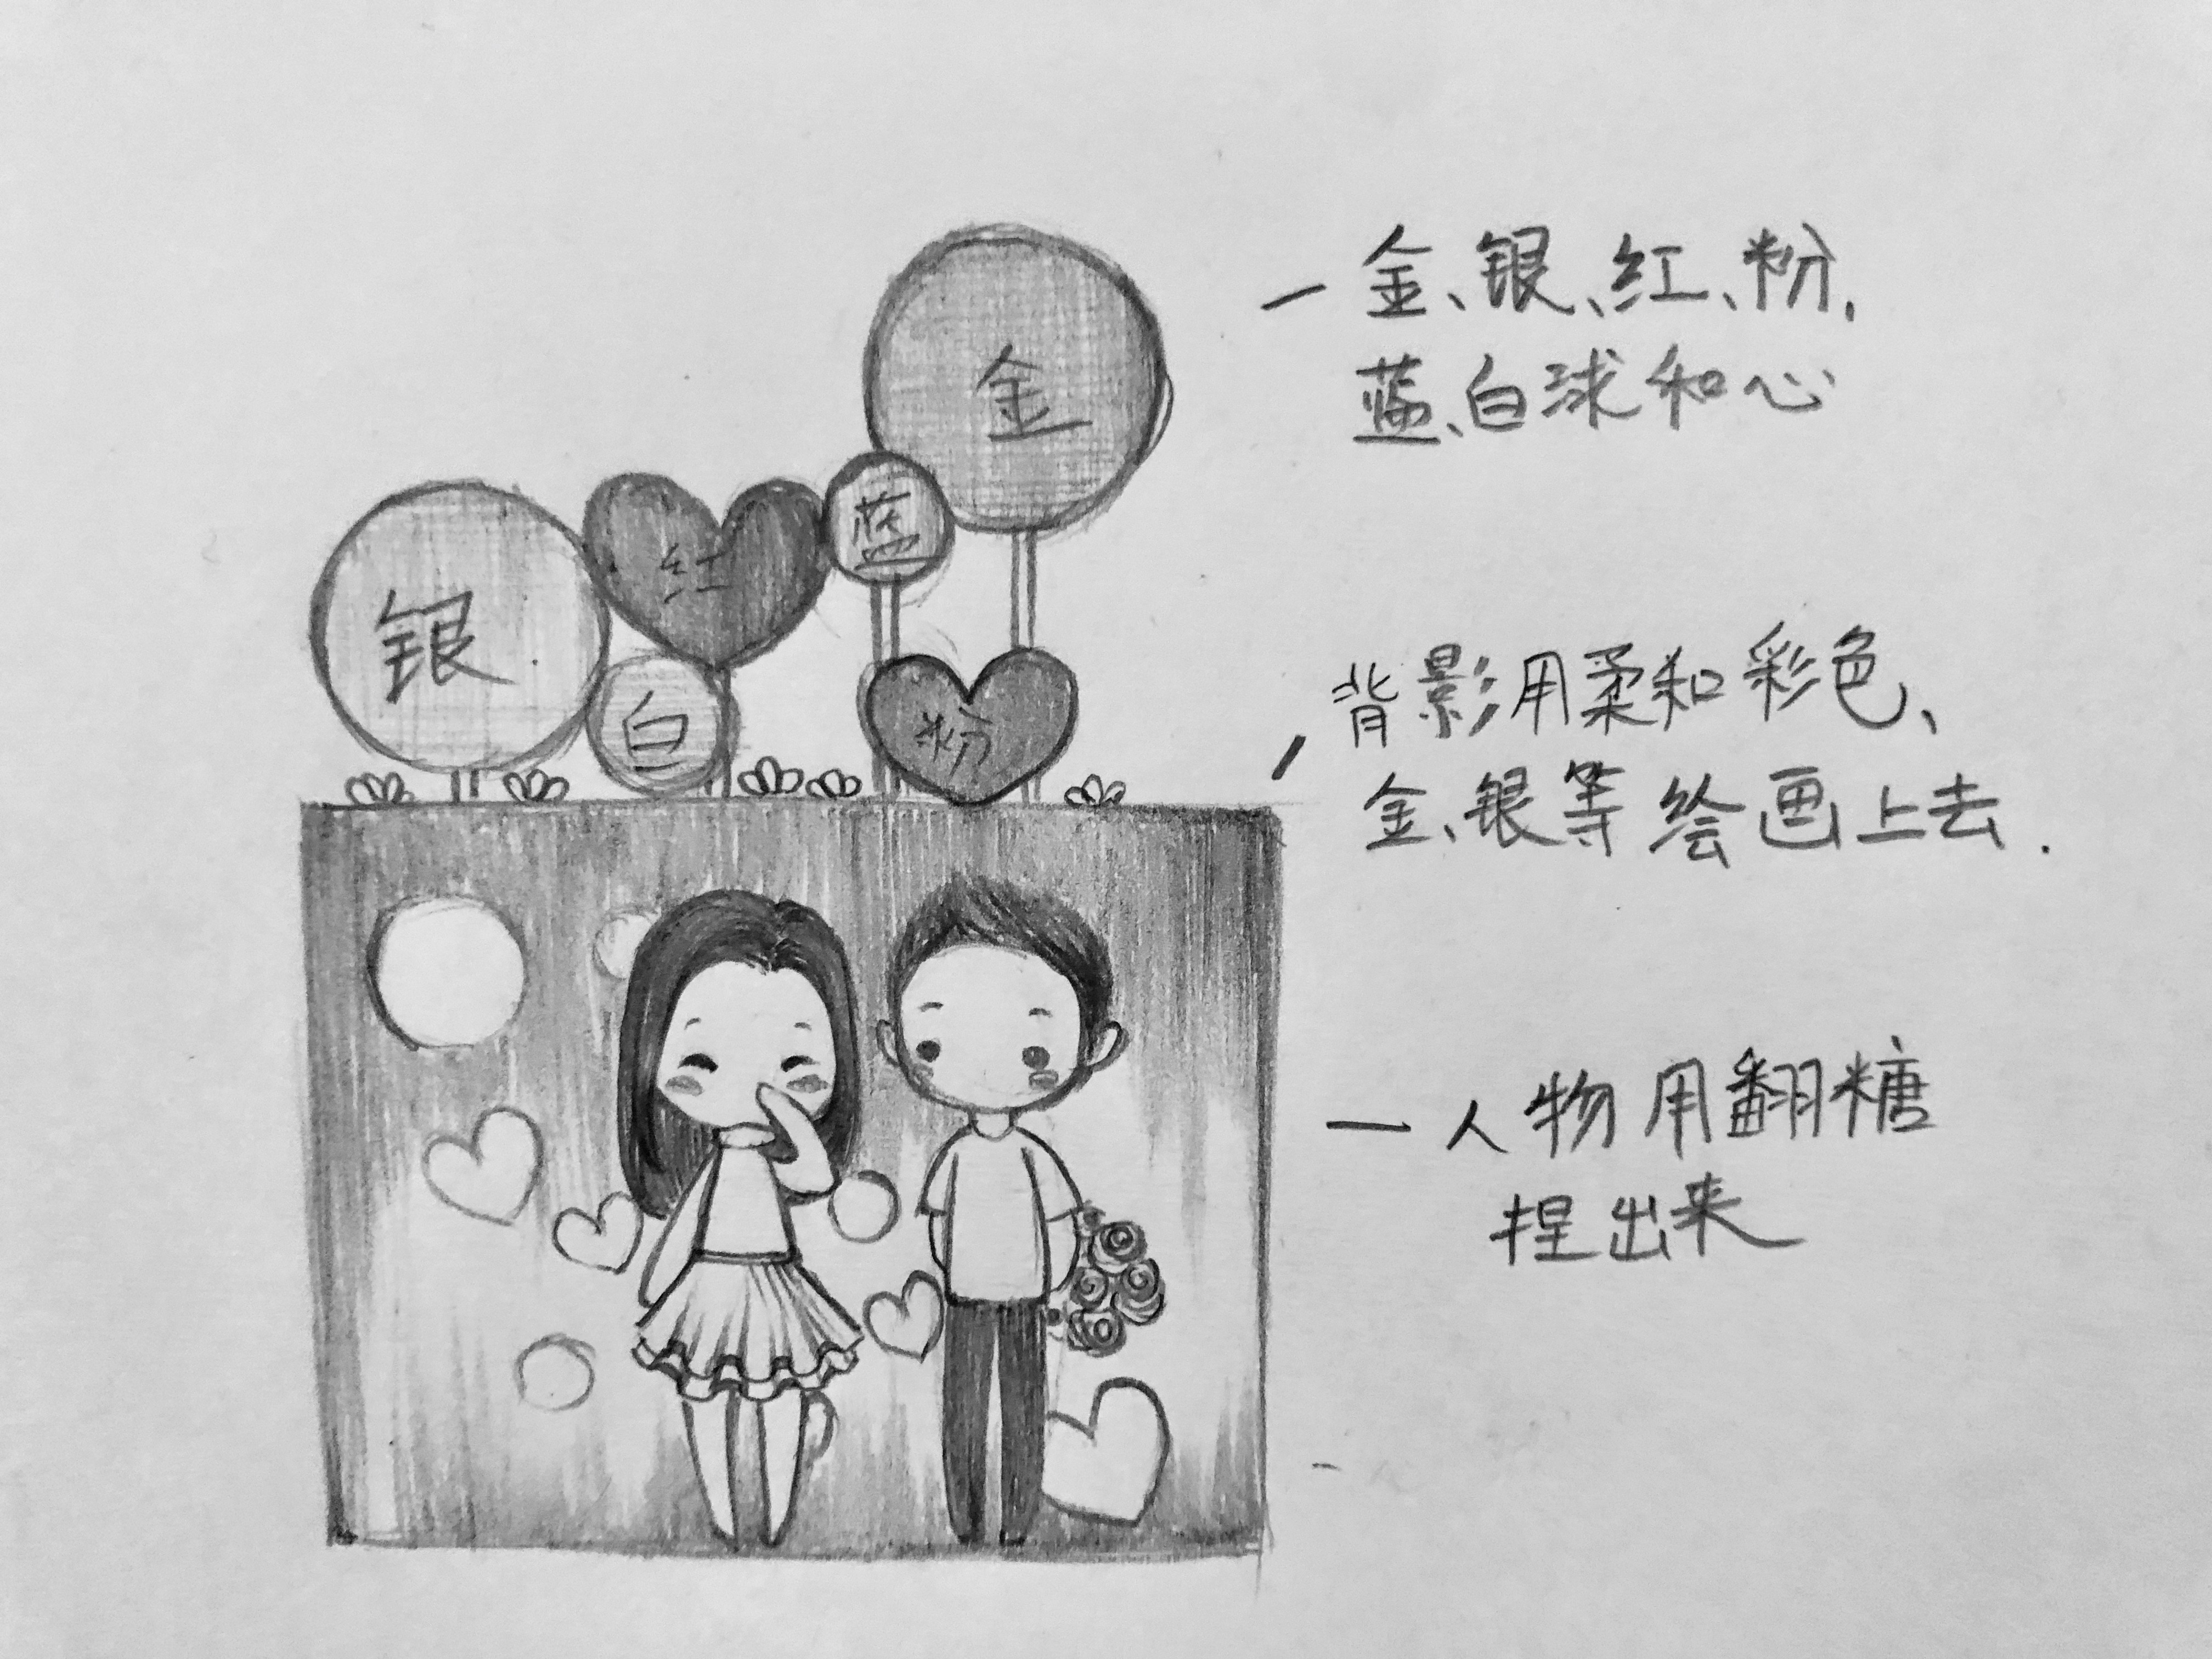 金
蓝
红
银
白
粉
一金、银、红、粉,
蓝、白球和心
背影用柔和彩色、
金、银等绘画上去.
一人物用翻糖
捏出来